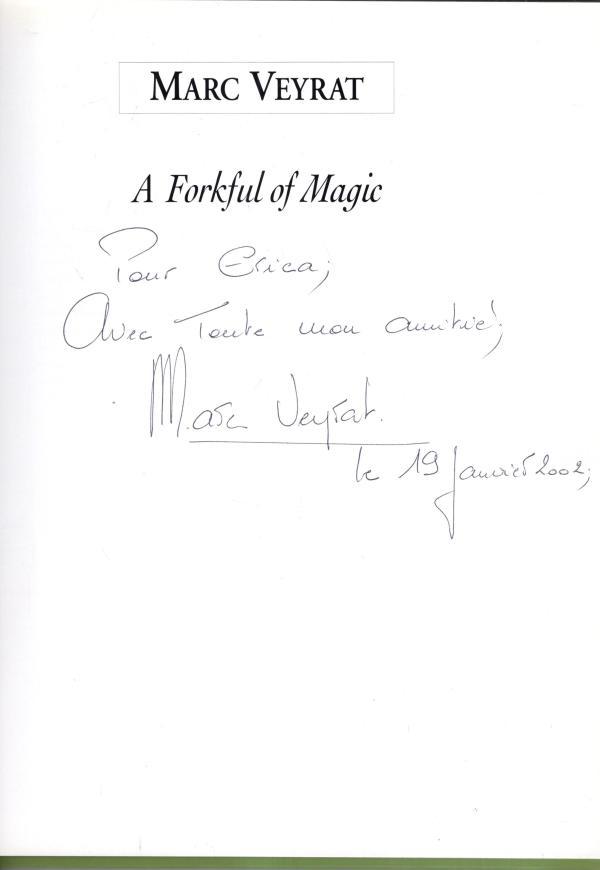 MARC VEYRAT
A Forkful of Magic
Pour Erica;
Avec Toute mon amitié;
Marc Veyrat.
le 19 Janvier 2002;